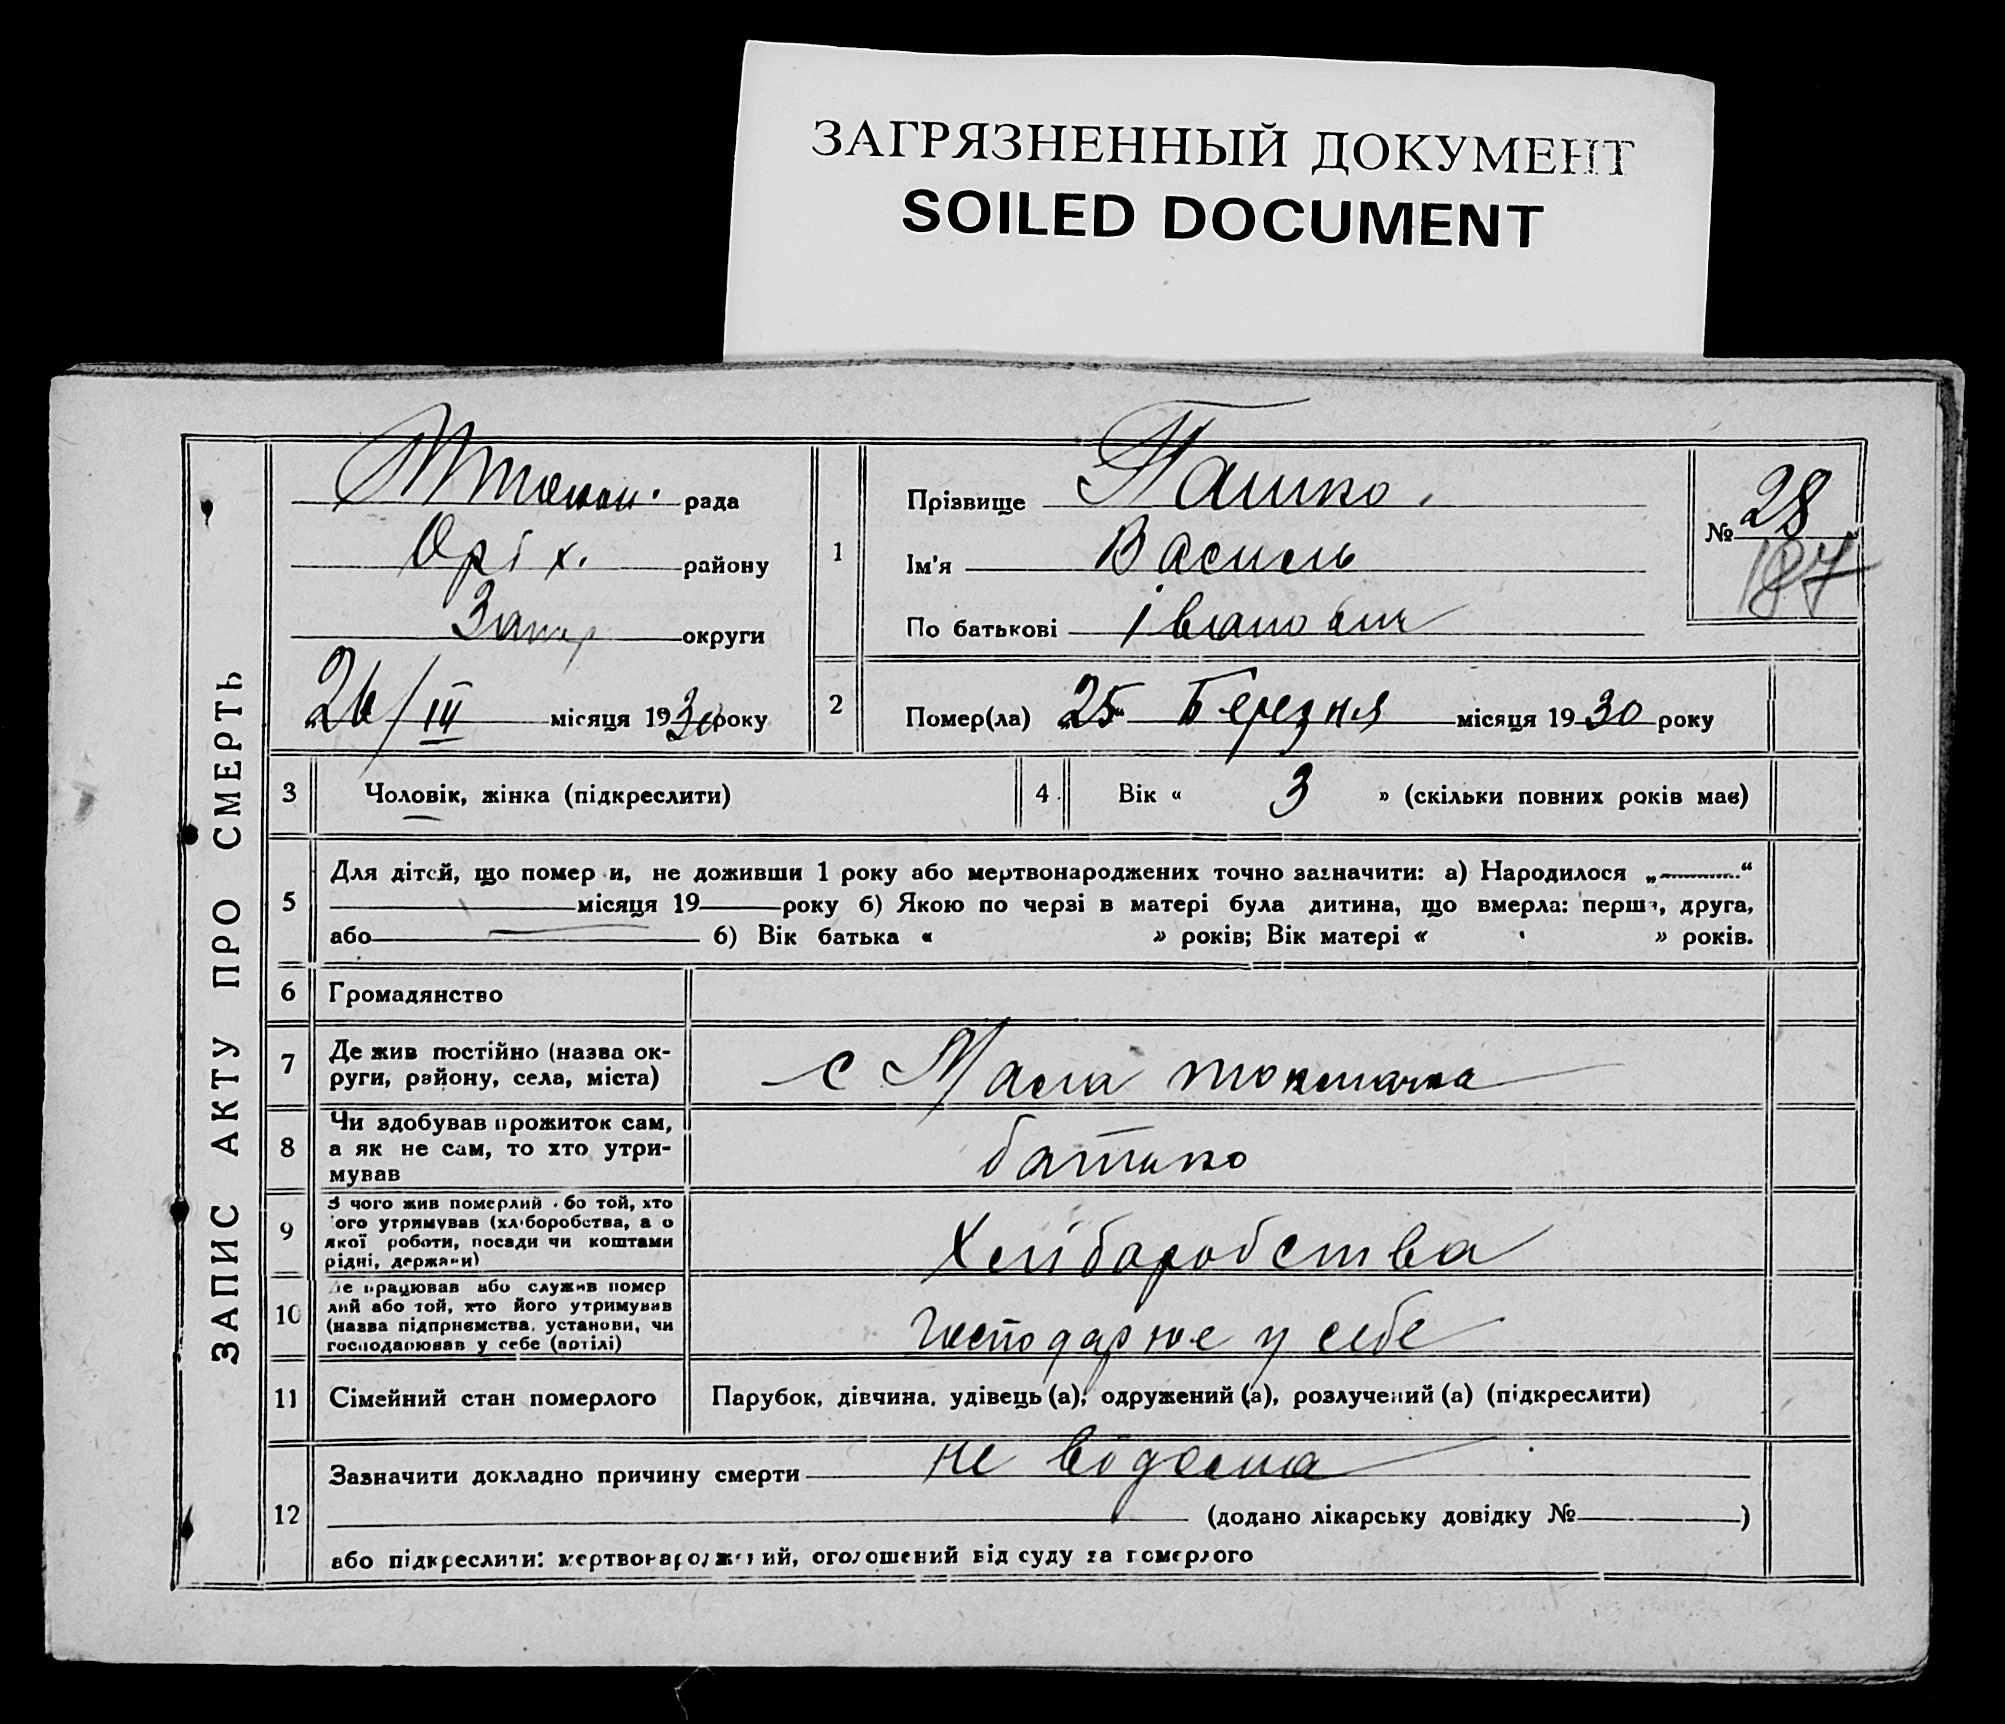 ЗАГРЯЗНЕННЫЙ ДОКУМЕНТ
SOILED DOCUMENT
ЗАПИС АКТУ ПРО СМЕРТЬ
рада
Оріх. району
Запор округи
26/III місяця 1930 року
1
Прізвище Пашко.
Ім'я Василь
По батькові Іванович
№ 28
187
2
Помер(ла) 25 Березня місяця 1930 року
3 Чоловік, жінка (підкреслити)
4 Вік « 3 » (скільки повних років має)
5
Для дітей, що помер и, не доживши 1 року або мертвонароджених точно зазначити: а) Народилося „ “
місяця 19 року б) Якою по черзі в матері була дитина, що вмерла: перша, друга,
або б) Вік батька « » років; Вік матері « » років.
6 Громадянство
7
Де жив постійно (назва ок-
руги, району, села, міста)
с Мала токмачка
8
Чи здобував прожиток сам,
а як не сам, то хто утри-
мував
батько
9
З чого жив померлий або той, хто
ого утримував (хліборобства, а о
якої роботи, посади чи коштами
рідні, держави)
Хліборобства
10
Де працював або служив помер
лий або той, хто його утримував
(назва підприємства, установи, чи
господарював у себе (артілі)
Господарює у себе
11 Сімейний стан померлого
Парубок, дівчина, удівець (а), одружений (а), розлучений (а) (підкреслити)
12
Зазначити докладно причину смерти не відома
(додано лікарську довідку № )
або підкреслити: мертвонароджений, оголошений від суду за померлого